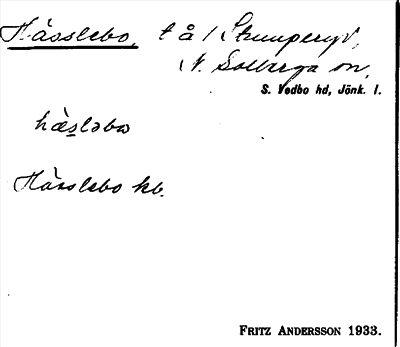 Hässlebo, t å / Stumperyd,
N. Solberga sn,
S. Vedbo hd, Jönk. l.
hæslebo
Hässlebo kb.
FRITZ ANDERSSON 1933.